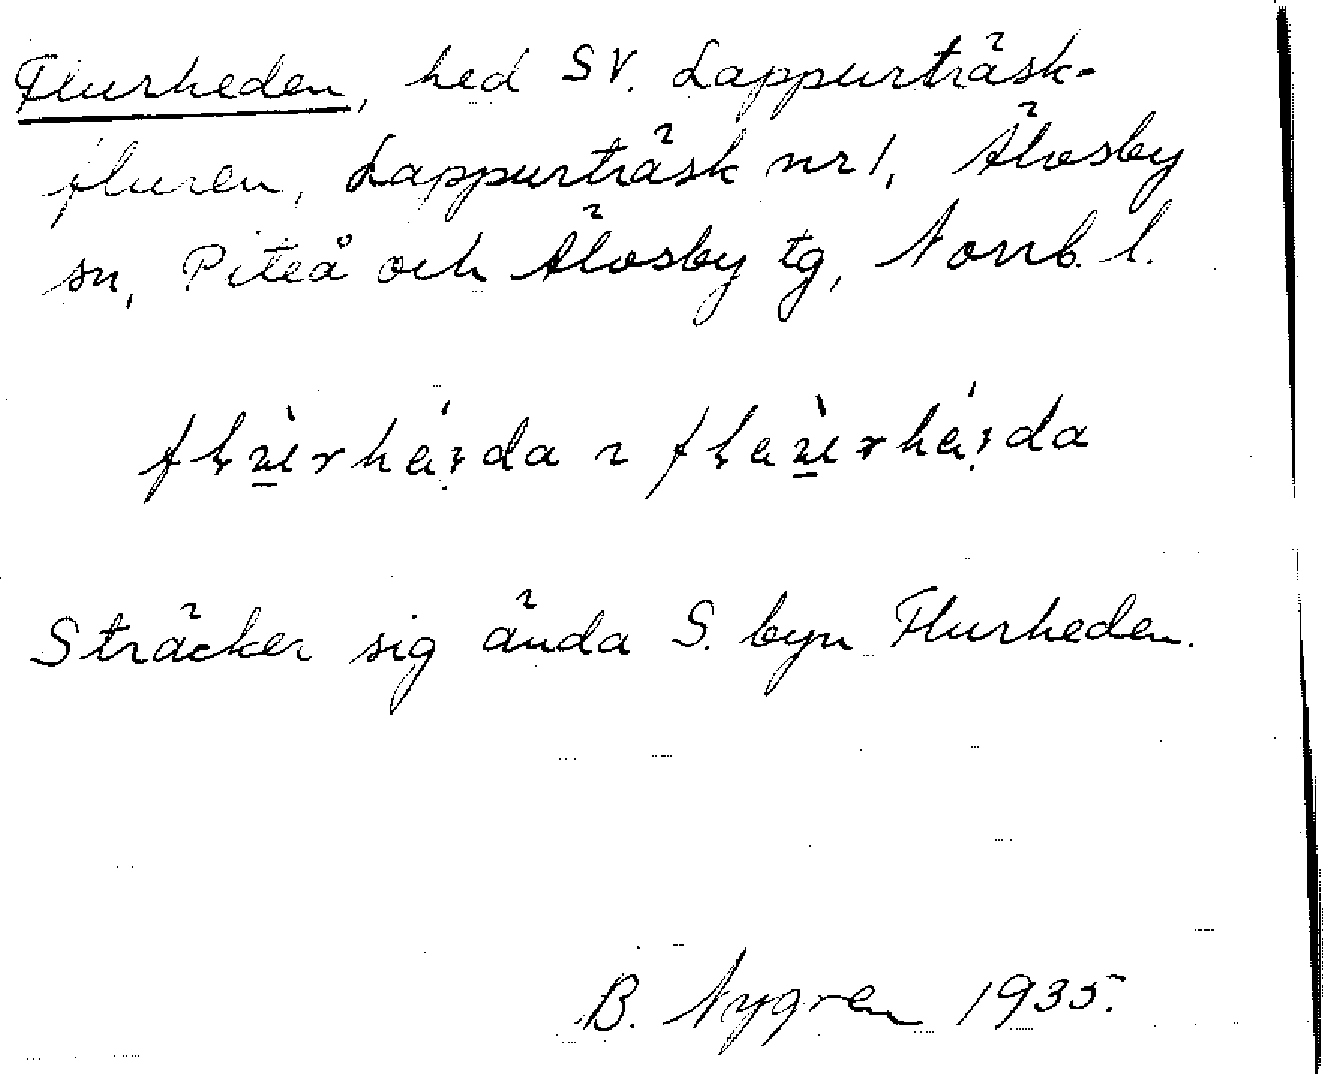 Flurheden, hed SV. Lappurträsk-
fluren, Lappurträsk nr 1, Älvsby
sn, Piteå och Älvsby tg, Norrb. l.
Sträcker sig ända S. byn Flurheden.
B. Nygren 1935.